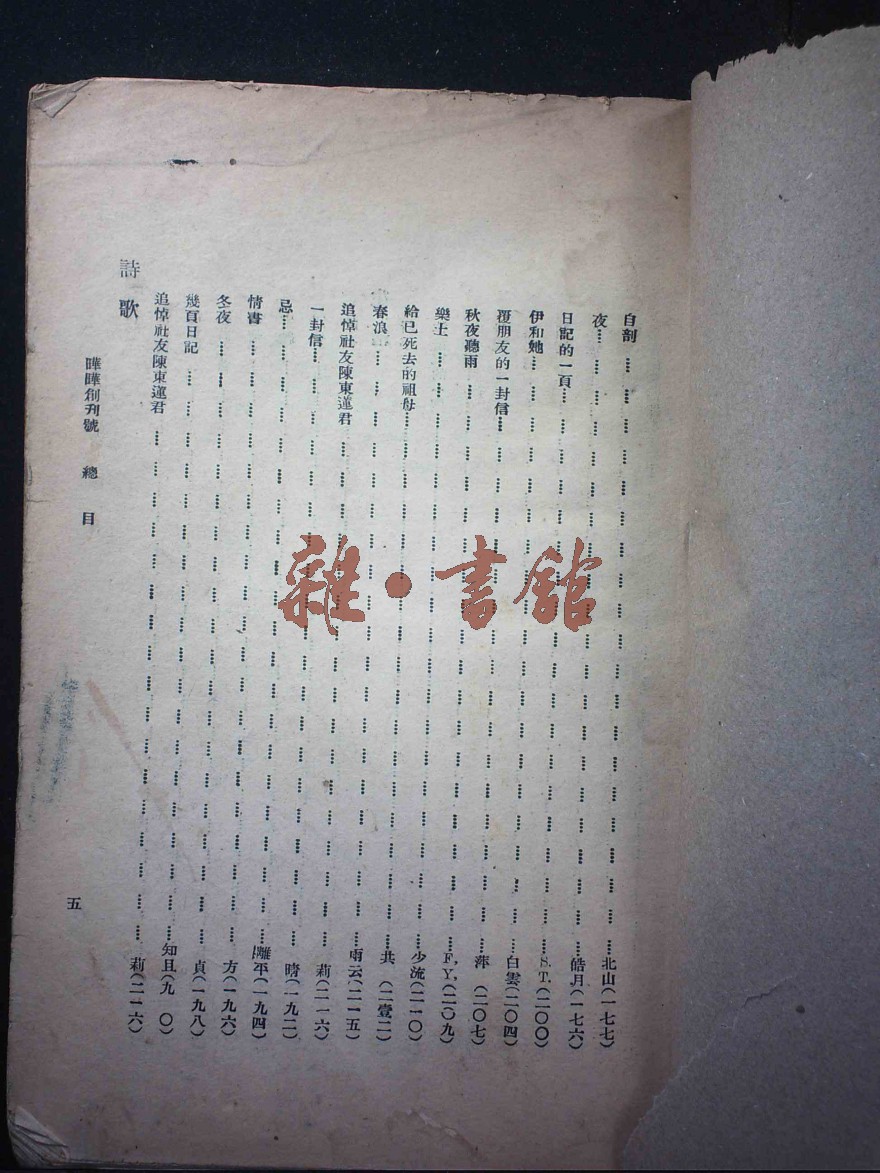 自剖 …… 北山(一七七)
夜 …… 皓月(一七六)
日記的一頁 …… S.T.(二〇〇)
伊和她 …… 白雲(二〇四)
覆朋友的一封信 …… 萍(二〇七)
秋夜聽雨 …… F.Y.(二〇九)
樂土 …… 少流(二一〇)
給已死去的祖母 …… 共(二壹二)
春浪 …… 雨云(二一五)
追悼社友陳東蓮君 …… 莉(二一六)
一封信 …… 晴(一九二)
忌 …… 離平(一九四)
情書 …… 方(一九六)
冬夜 …… 貞(一九八)
幾頁日記 …… 知且(九 〇)
追悼社友陳東蓮君 …… 莉(二一六)
詩歌
曄曄創刊號 總目 五
雜·書館